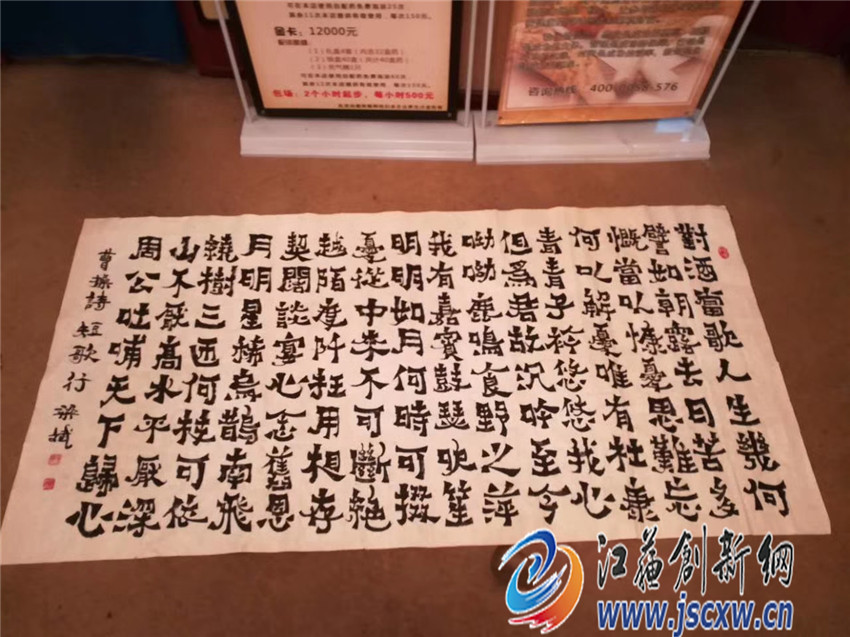 金卡：12000元
包场：2个小时起步，每小时500元
咨询热线
對酒當歌人生幾何
譬如朝露去日苦多
慨當以慷憂思難忘
何以解憂唯有杜康
青青子衿悠悠我心
但爲君故沉吟至今
呦呦鹿鳴食野之萍
我有嘉賓鼓瑟吹笙
明明如月何時可掇
憂從中來不可斷絕
越陌度阡枉用相存
契闊談宴心念舊恩
月明星稀烏鵲南飛
繞樹三匝何枝可依
山不厭高水不厭深
周公吐哺天下歸心
曹操詩 短歌行
江蘇創新網
www.jscxw.cn